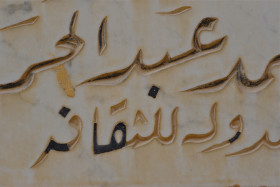 مد عبد الحر
دوله للثقافه